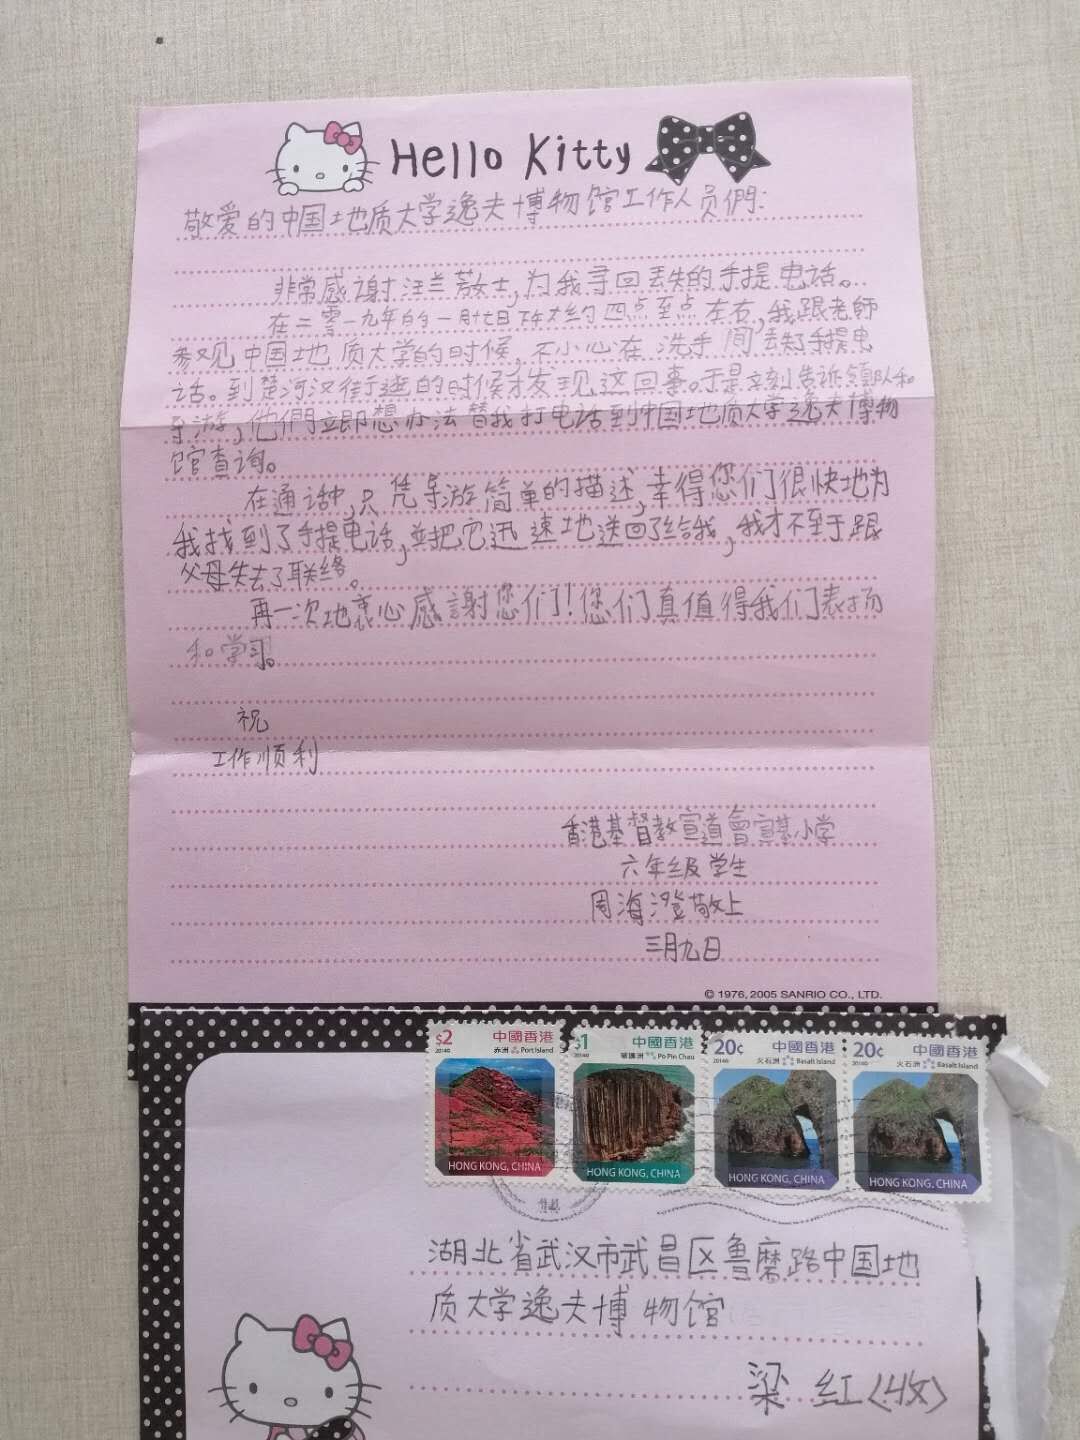 Hello Kitty
敬爱的中国地质大学逸夫博物馆工作人员們:
非常感谢汪兰敎士,为我寻回丢失的手提电话。
在二零一九年的一月十七日下午大约四点至点左右,我跟老師
参观中国地质大学的时候,不小心在洗手间丢失了手提电
话。到楚河汉街逛的时候才发现这回事。于是立刻告訴領队和
导游,他們立即想办法替我打电话到中国地质大学逸夫博物
馆查询。
在通话中,只凭导游简单的描述,幸得您们很快地为
我找到了手提电话,並把它迅速地送回了给我,我才不至于跟
父母失去了联络。
再一次地衷心感謝您们!您们真值得我们表扬
和学习。
祝
工作顺利
香港基督教宣道會宣基小学
六年级学生
周海澄敬上
三月九日
© 1976, 2005 SANRIO CO., LTD.
$2 中國香港 $1 中國香港 20¢ 中國香港 20¢ 中國香港
赤洲 Port Island 破邊洲 Po Pin Chau 火石洲 Basalt Island 火石洲 Basalt Island
HONG KONG, CHINA HONG KONG, CHINA HONG KONG, CHINA HONG KONG, CHINA
湖北省武汉市武昌区鲁磨路中国地
质大学逸夫博物馆
梁红(收)